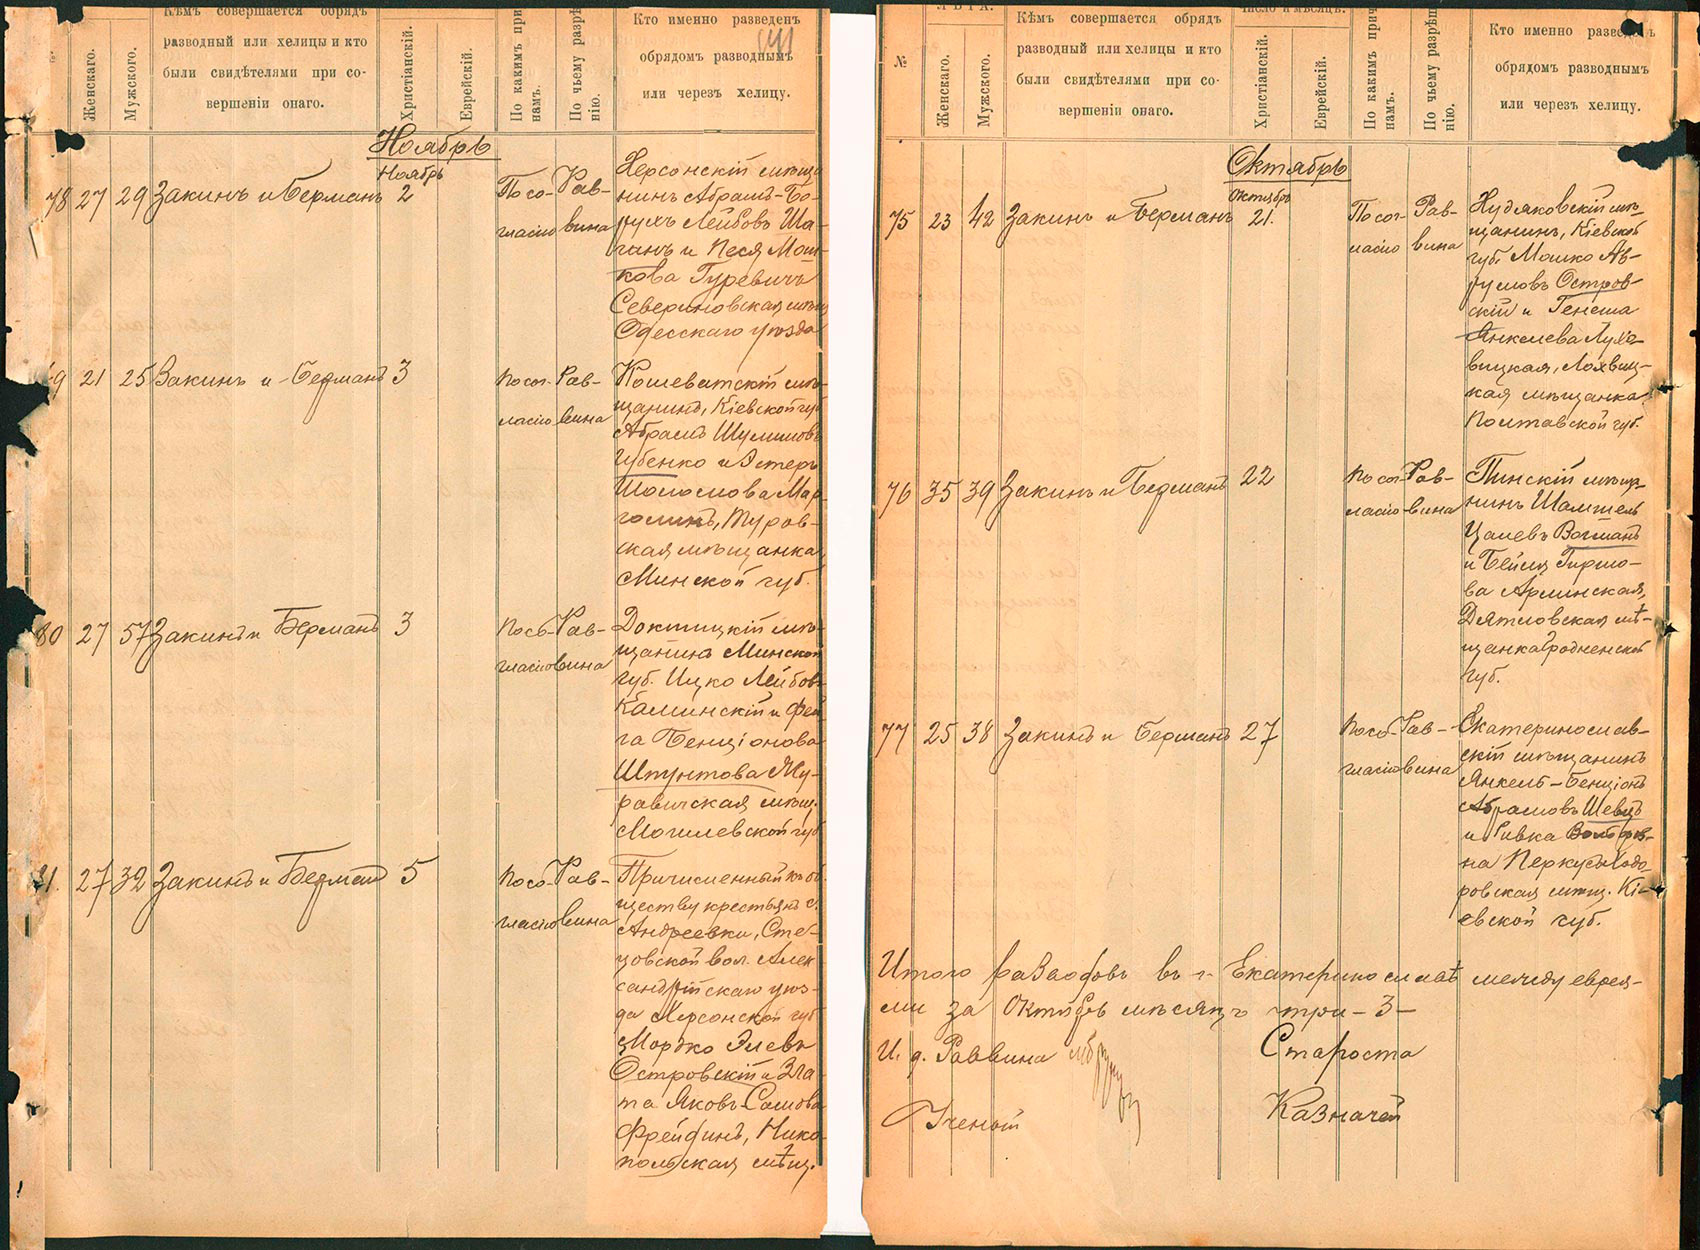 Кѣмъ совершается обрядъ
разводный или хелицы и кто
были свидѣтелями при со-
вершеніи онаго.
Женскаго.
Мужского.
Христіанскій.
Еврейскій.
По какимъ при
намъ.
По чьему разрѣ
нію.
Кто именно разведенъ
обрядомъ разводнымъ
или черезъ хелицу.
Ноябрь
Ноябрь
78 27 29 Закинъ и Берманъ 2
По со-
гласію
Рав-
вина
Херсонскій мѣща
нинъ Абрамъ-Бо-
рухъ Лейбовъ Ша-
ганъ и Песя Мош-
кова Гуревичъ
Севериновская мѣщ
Одесскаго уѣзда
9 21 25 Закинъ и Берманъ 3
По сог-
ласію
Рав-
вина
Кошеватскій мѣ-
щанинъ, Кіевской гуд
Абрамъ Шулимовъ
Губенко и Эстеръ
Шоломова Мар-
голинъ, Туров-
ская мѣщанка,
Минской губ.
80 27 57 Закинъ и Берманъ 3
По со-
гласію
Рав-
вина
Докшицкій мѣ-
щанинъ Минской
губ. Ицко Лейбовъ
Каминскій и Фей
га Бенціонова
Шпунтова Жу-
равичская мѣщ.
Могилевской губ
81. 27 32 Закинъ и Берманъ 5
По со-
гласію
Рав-
вина
Причисленный къ об
ществу крестьянъ с.
Андреевки, Сте-
цовской вол. Алек
сандрійскаго уѣз-
да Херсонской губ
Мордко Элевъ
Островскій и Зла-
та Яковъ-Самова
Фрейдинъ, Нико-
польская мѣщ.
ЛѢТА.
№
Женскаго.
Мужского.
Кѣмъ совершается обрядъ
разводный или хелицы и кто
были свидѣтелями при со-
вершеніи онаго.
Число и мѣсяцъ.
Христіанскій.
Еврейскій.
По какимъ прич
намъ.
По чьему разрѣш
нію.
Кто именно разведенъ
обрядомъ разводнымъ
или черезъ хелицу.
Октябрь
Октябрь
75 23 42 Закинъ и Берманъ 21.
По сог-
ласію
Рав-
вина
мѣ-
щанинъ, Кіевской
губ. Мошко Ав-
румовъ Остров-
скій и Генеша
Янкелева Лухо-
вицкая, Лохвиц-
кая мѣщанка
Полтавской губ.
76 35 39 Закинъ и Берманъ 22
По сог-
ласію
Рав-
вина
Пинскій мѣща-
нинъ
Цалевъ Вогманъ
и Бейля Гиршо-
ва Арлинская,
Дятловская мѣ-
щанка Гродненской
губ.
77 25 38 Закинъ и Берманъ 27
По со-
гласію
Рав-
вина
Екатеринослав-
скій мѣщанинъ
Янкель-Бенціонъ
Абрамовъ Шевцъ
и Ривка Вольфов-
на Перкусъ Ходо-
ровская мѣщ. Кі-
евской губ.
Итого разводовъ въ г. Екатеринославѣ между еврея-
ми за Октябрь мѣсяцъ три-3-
И. д. Раввина
Староста
Ученый
Казначей